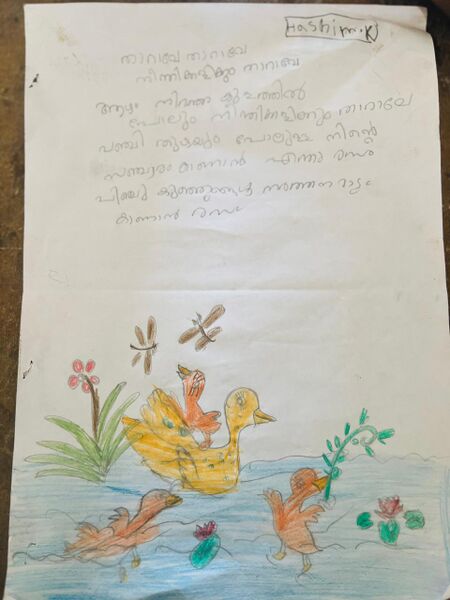 Hashim.K
താറാവേ താറാവേ
നീന്തിക്കളിക്കും താറാവേ
ആഴം നിറഞ്ഞ കുളത്തിൽ
പോലും നീന്തിക്കളിക്കും താറാവേ
പഞ്ചി തുഴയും പോലുള്ള നിന്റെ
സഞ്ചാരം കാണാൻ എന്തു രസം
പിഞ്ചു കുഞ്ഞുങ്ങൾ
കാണാൻ രസം